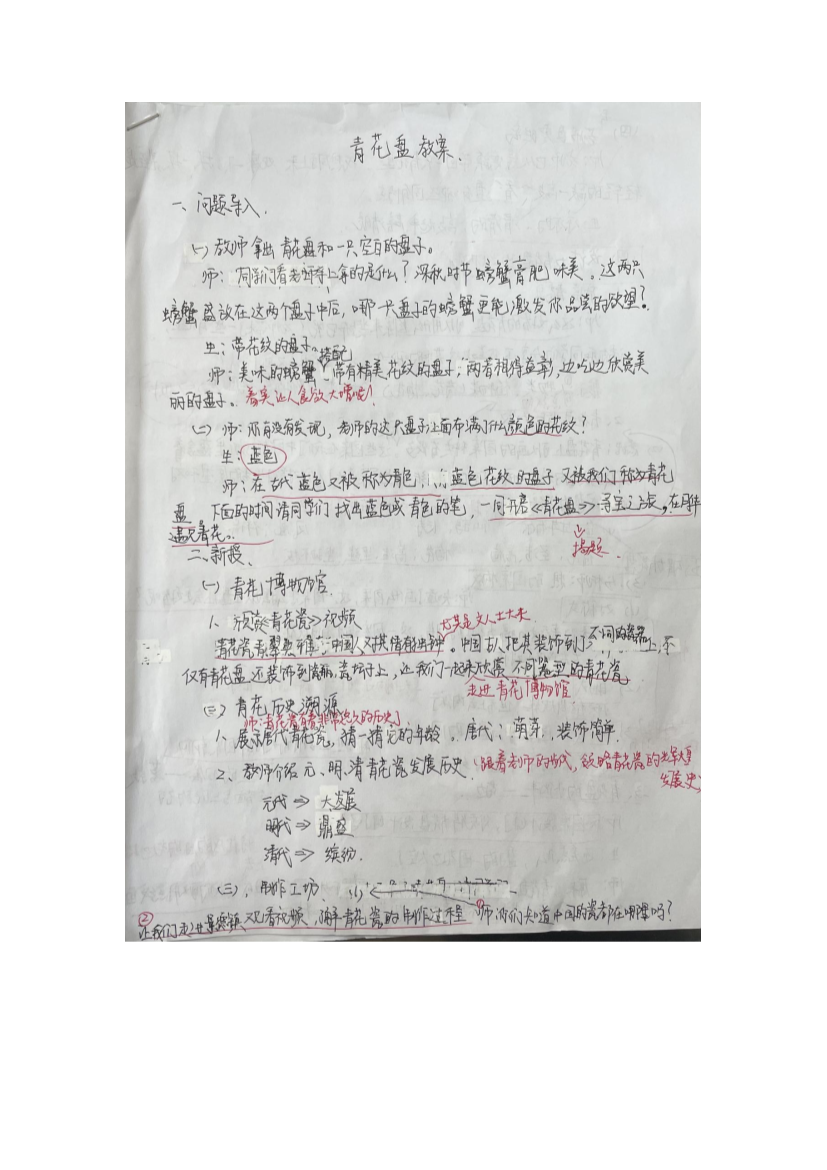 青花盘教案.
一、问题导入.
(一) 教师拿出青花盘和一只空白的盘子。
师: 同学们看老师手上拿的是什么? 深秋时节螃蟹膏肥味美。这两只
螃蟹盛放在这两个盘子中后, 哪一只盘子的螃蟹更能激发你品尝的欲望?
生: 带花纹的盘子。
搭配
师: 美味的螃蟹 带有精美花纹的盘子, 两者相得益彰, 边吃边欣赏美
丽的盘子。着实让人食欲大增呢!
(二) 师: 你有没有发现, 老师的这只盘子上面布满了什么颜色的花纹?
生: 蓝色
师: 在古代蓝色又被称为青色, ∴蓝色花纹的盘子又被我们称为青花
盘 下面的时间请同学们找出蓝色或青色的笔, 一同开启《青花盘》寻宝之旅,
遇见青花。
揭题.
二、新授、
(一) 青花博物馆.
1、欣赏《青花瓷》视频
尤其是文人士大夫.
青花瓷青翠 中国人对其情有独钟。中国古人把其装饰到了不同的瓷器上, 不
仅有青花盘还装饰到 瓷坛子上, 让我们一起来欣赏不同器型的青花瓷
走进青花博物馆
(二) 青花历史溯源
师: 青花瓷有着非常悠久的历史
1、展示唐代青花瓷, 猜一猜它的年龄. 唐代: 萌芽. 装饰简单.
2、教师介绍元、明、清青花瓷发展历史. 跟着老师的步伐, 领略青花瓷的
发展史
元代 ⇒ 大发展
明代 ⇒ 鼎盛
清代 ⇒ 缤纷.
(三), 制作工坊. (1)
① 师: 你们知道中国的瓷都在哪里吗?
② 让我们走进景德镇, 观看视频, 了解青花瓷的制作过程